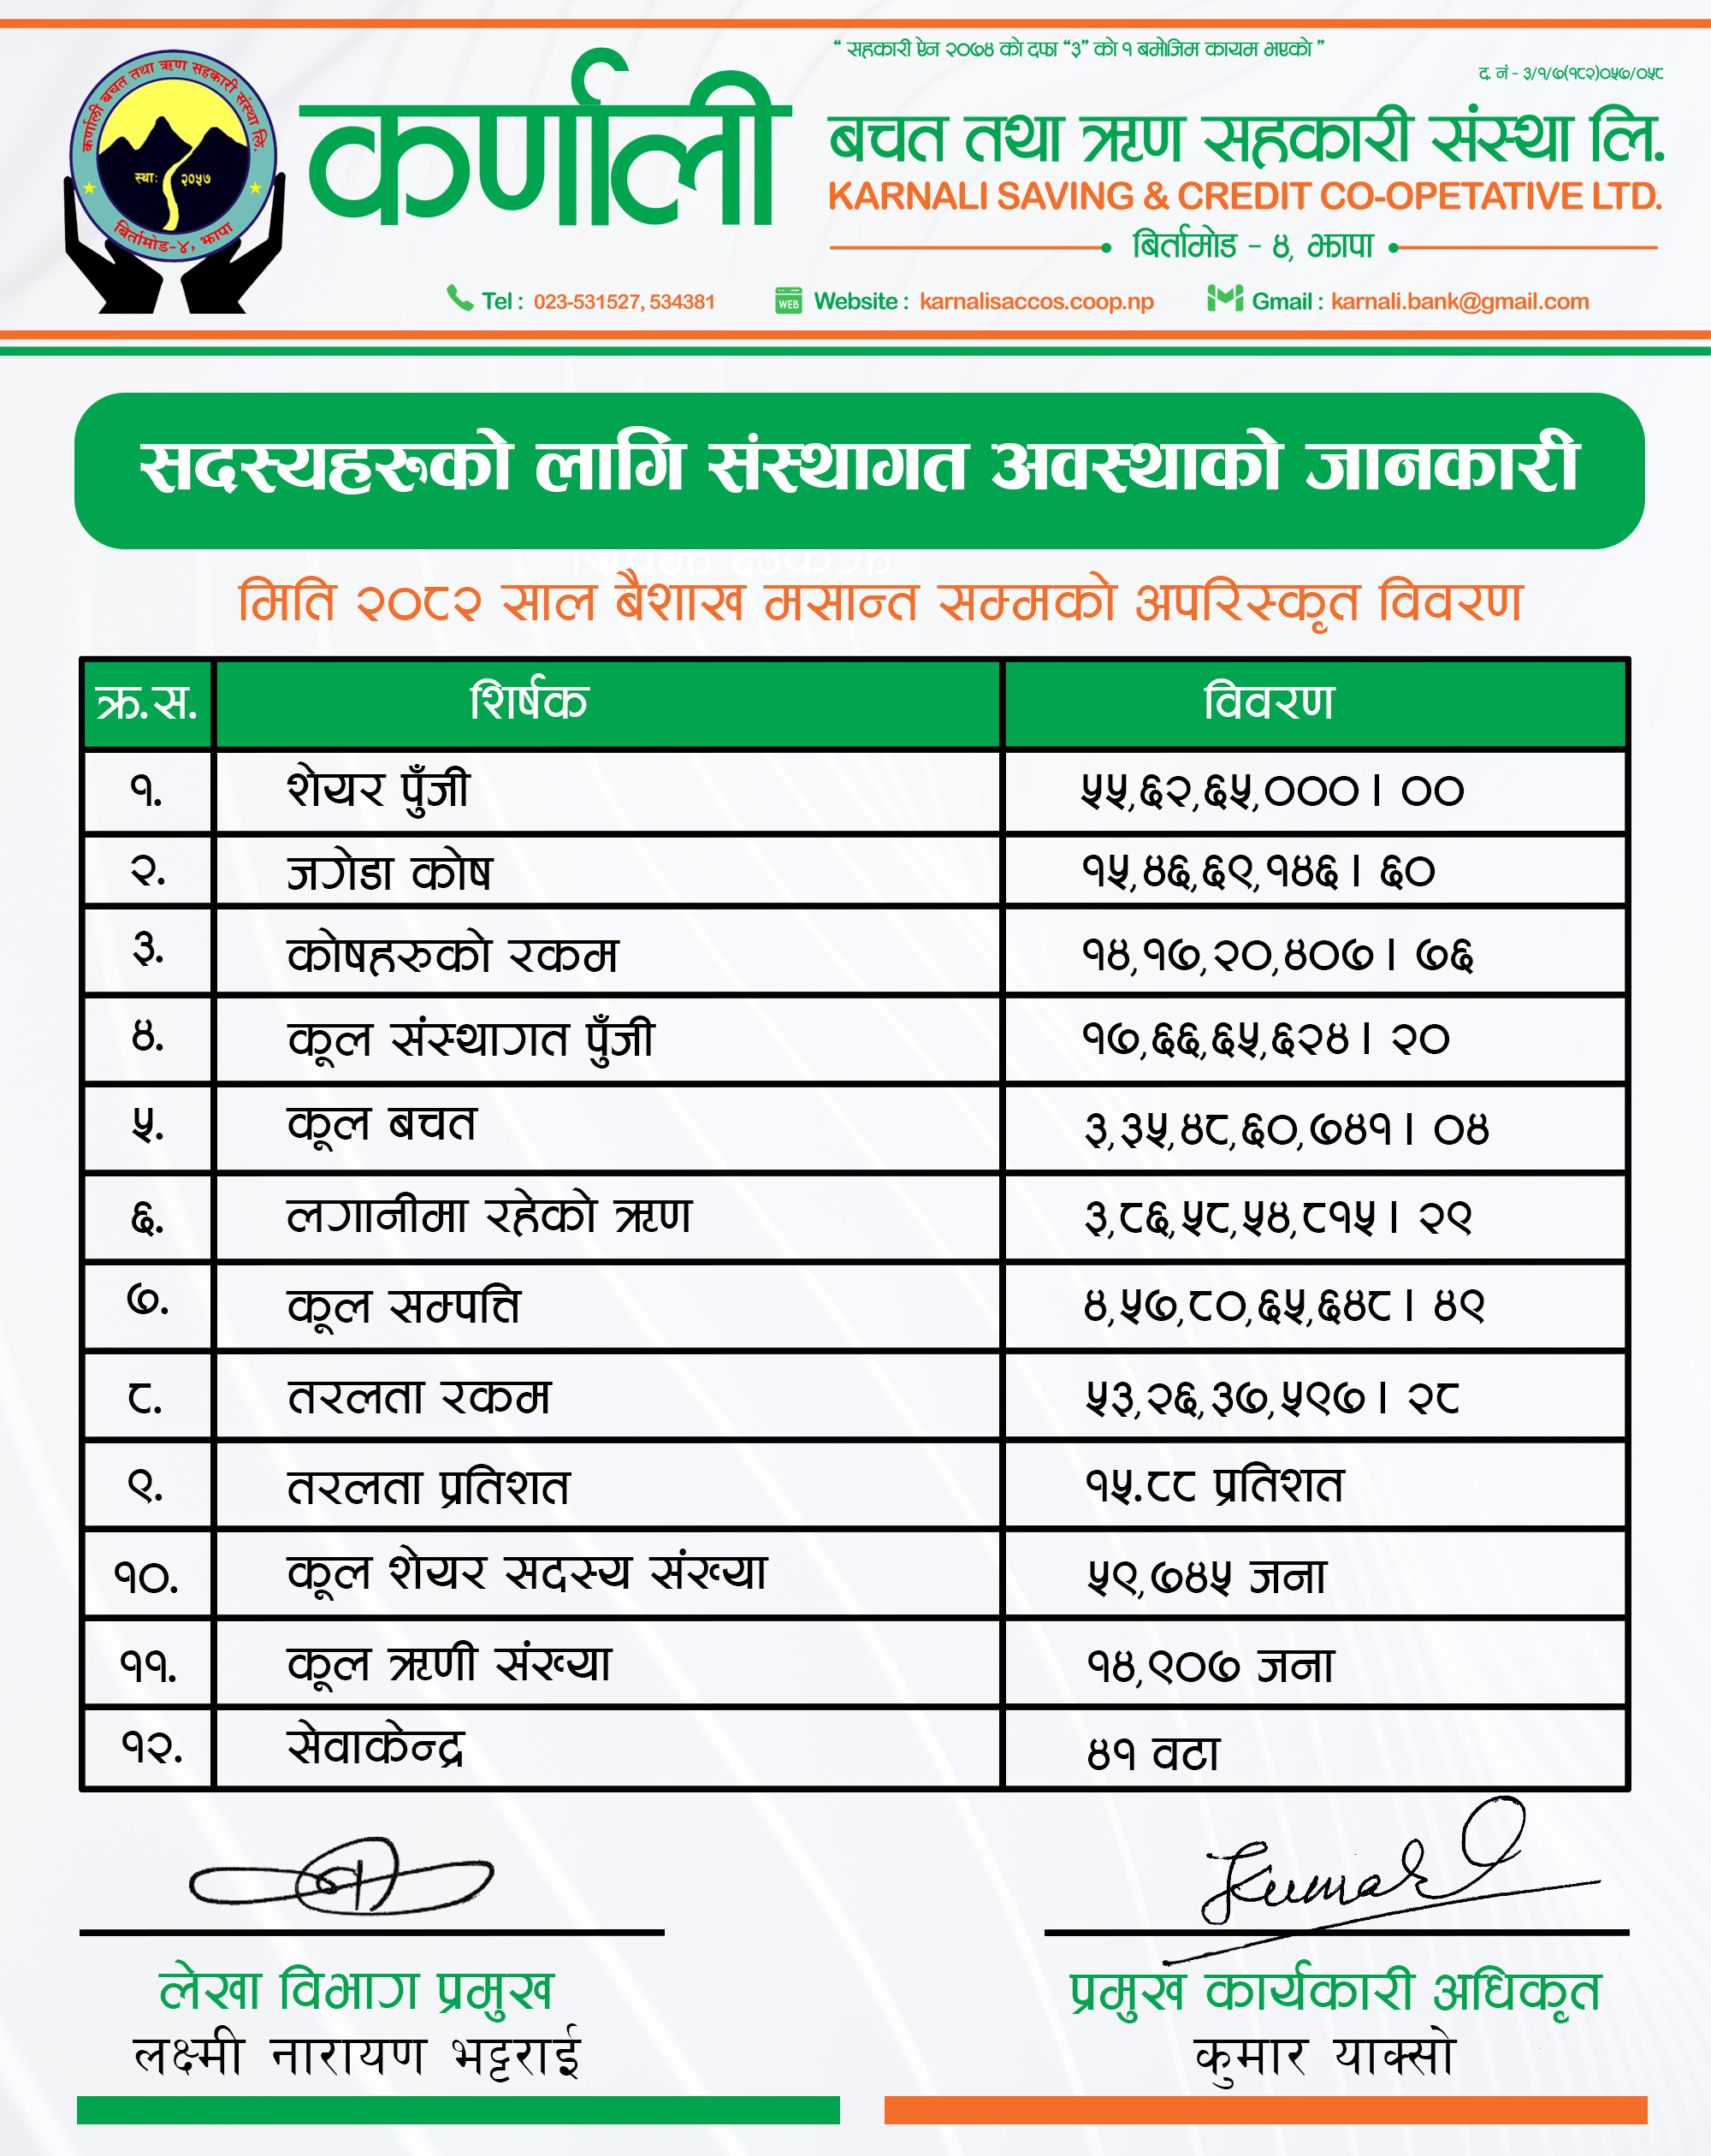 “ सहकारी ऐन २०७४ को दफा “३” को १ बमोजिम कायम भएको ”
द. नं - ३/१/७(१८२)०५७/०५८
कर्णाली बचत तथा ऋण सहकारी संस्था लि.
स्था: २०५७
बिर्तामोड-४, झापा
कर्णाली
बचत तथा ऋण सहकारी संस्था लि.
KARNALI SAVING & CREDIT CO-OPETATIVE LTD.
बिर्तामोड - ४, झापा
Tel : 023-531527, 534381 WEB Website : karnalisaccos.coop.np Gmail : karnali.bank@gmail.com
सदस्यहरुको लागि संस्थागत अवस्थाको जानकारी
मिति २०८२ साल बैशाख मसान्त सम्मको अपरिस्कृत विवरण
क्र.स. शिर्षक विवरण
१. शेयर पुँजी ५५,६२,६५,०००। ००
२. जगेडा कोष १५,४६,६९,१४६। ६०
३. कोषहरुको रकम १४,१७,२०,४०७। ७६
४. कूल संस्थागत पुँजी १७,६६,६५,६२४। २०
५. कूल बचत ३,३५,४८,६०,७४१। ०४
६. लगानीमा रहेको ऋण ३,८६,५८,५४,८१५। २९
७. कूल सम्पत्ति ४,५७,८०,६५,६४८। ४९
८. तरलता रकम ५३,२६,३७,५९७। २८
९. तरलता प्रतिशत १५.८८ प्रतिशत
१०. कूल शेयर सदस्य संख्या ५९,७४५ जना
११. कूल ऋणी संख्या १४,९०७ जना
१२. सेवाकेन्द्र ४१ वटा
Kumar
लेखा विभाग प्रमुख
लक्ष्मी नारायण भट्टराई
प्रमुख कार्यकारी अधिकृत
कुमार याक्सो